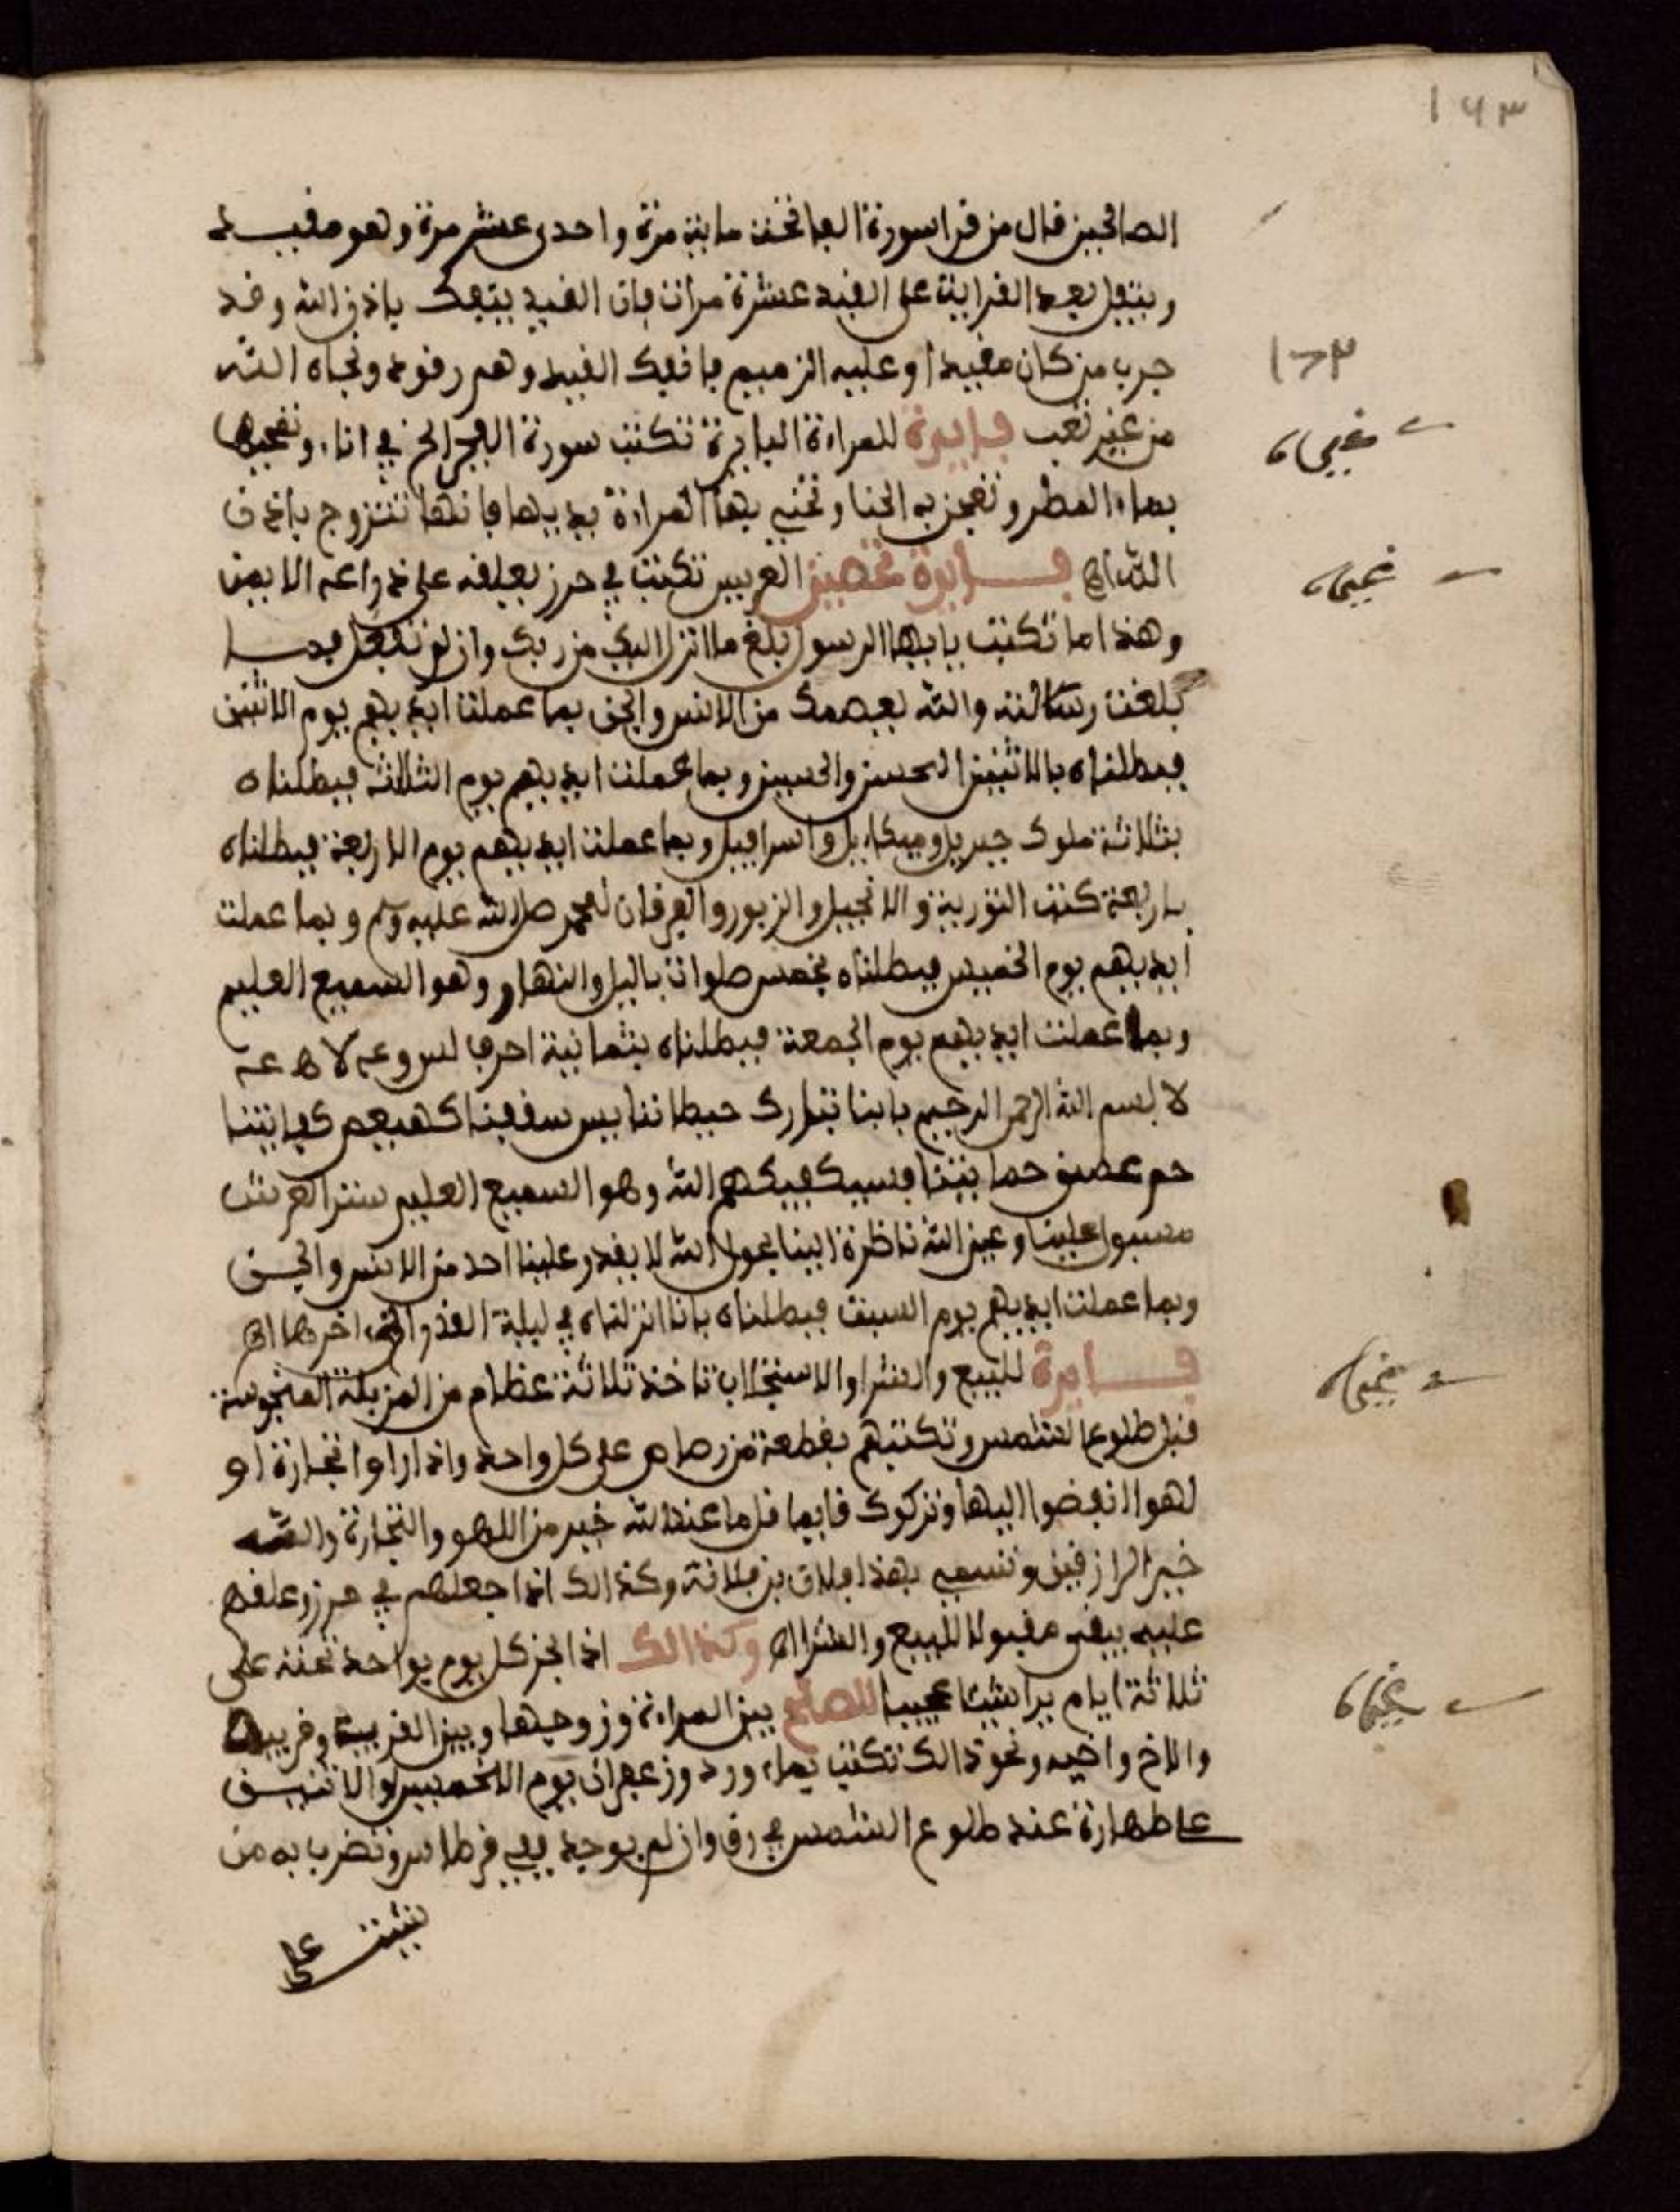 ١٦٣
الصالحين قال من قرا سورة الفاتحة ماية مرة واحدى عشر مرة وهو مقيد
ويتفل بعد القراية على القيد عشرة مرات فان القيد يتفك باذن الله وقد
١٧٣
جرب من كان مقيدا وعليه الزميم فانفك القيد وهم رقود ونجاه الله
من غير تعب فايدة للمراءة البايرة تكتب سورة الفجر الخ في اناء وتمحيها
بماء المطر وتعجن به الحنا وتحني بها المراءة يديها فانها تتزوج باذن
الله اه فايدة تحصين العريس تكتب في حرز يعلقه على ذراعه الايمن
وهذا ما تكتب يايها الرسول بلغ ما انزل اليك من ربك وان لم تفعل فما
بلغت رسالته والله يعصمك من الانس والجن بما عملت ايديهم يوم الاثنين
فبطلناه بالاثنين الحسن والحسين وبما عملت ايديهم يوم الثلاثة فبطلناه
بثلاثة ملوك جبريل وميكاءيل واسرافيل وبما عملت ايديهم يوم الاربعة فبطلناه
باربعة كتب التورية والانجيل والزبور والفرقان لمحمد صلى الله عليه وسلم وبما عملت
ايديهم يوم الخميس فبطلناه بخمس صلوات باليل والنهار وهو السميع العليم
وبما عملت ايديهم يوم الجمعة فبطلناه بثمانية احرف
لا بسم الله الرحمن الرحيم بابنا تبارك حيطاننا يس سقفنا كهيعص كفايتنا
حم عسق حمايتنا فسيكفيكهم الله وهو السميع العليم ستر العرش
مسبول علينا وعين الله ناظرة الينا بحول الله لا يقدر علينا احد من الانس والجن
وبما عملت ايديهم يوم السبت فبطلناه بانا انزلناه في ليلة القدر الى اخرها اه
فايدة للبيع والشرا والاستجلاب تاخذ ثلاثة عظام من المزبلة المنجوسة
قبل طلوع الشمس وتكتبهم بقطعة من رصاص على كل واحد واذا راوا تجارة او
لهوا انفضوا اليها وتركوك قايما قل ما عند الله خير من اللهو والتجارة والله
خير الرازقين وتسمي بهذا فلان بن فلانة وكذالك اذا جعلهم في حرز وعلقه
عليه يبقى مقبولا للبيع والشرا اه وكذالك اذا بخر كل يوم بواحد عنه على
ثلاثة ايام يرا شيئا عجيبا للصلح بين المراءة وزوجها وبين القريب وقريبه
والاخ واخيه ونحو ذالك تكتب بماء ورد وزعفران يوم الخميس او الاثنين
على طهارة عند طلوع الشمس في رق وان لم يوجد ففي قرطاس وتضرب به من
شئت على